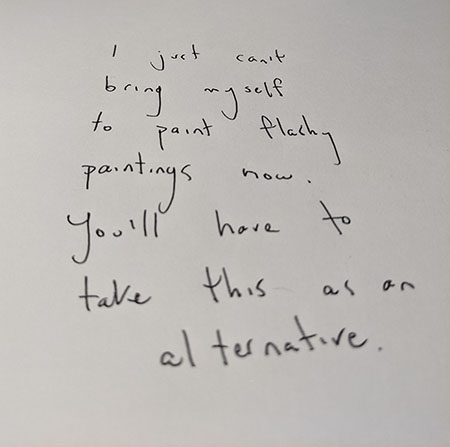 I just can't
bring myself
to paint flashy
paintings now.
You'll have to
take this as an
alternative.